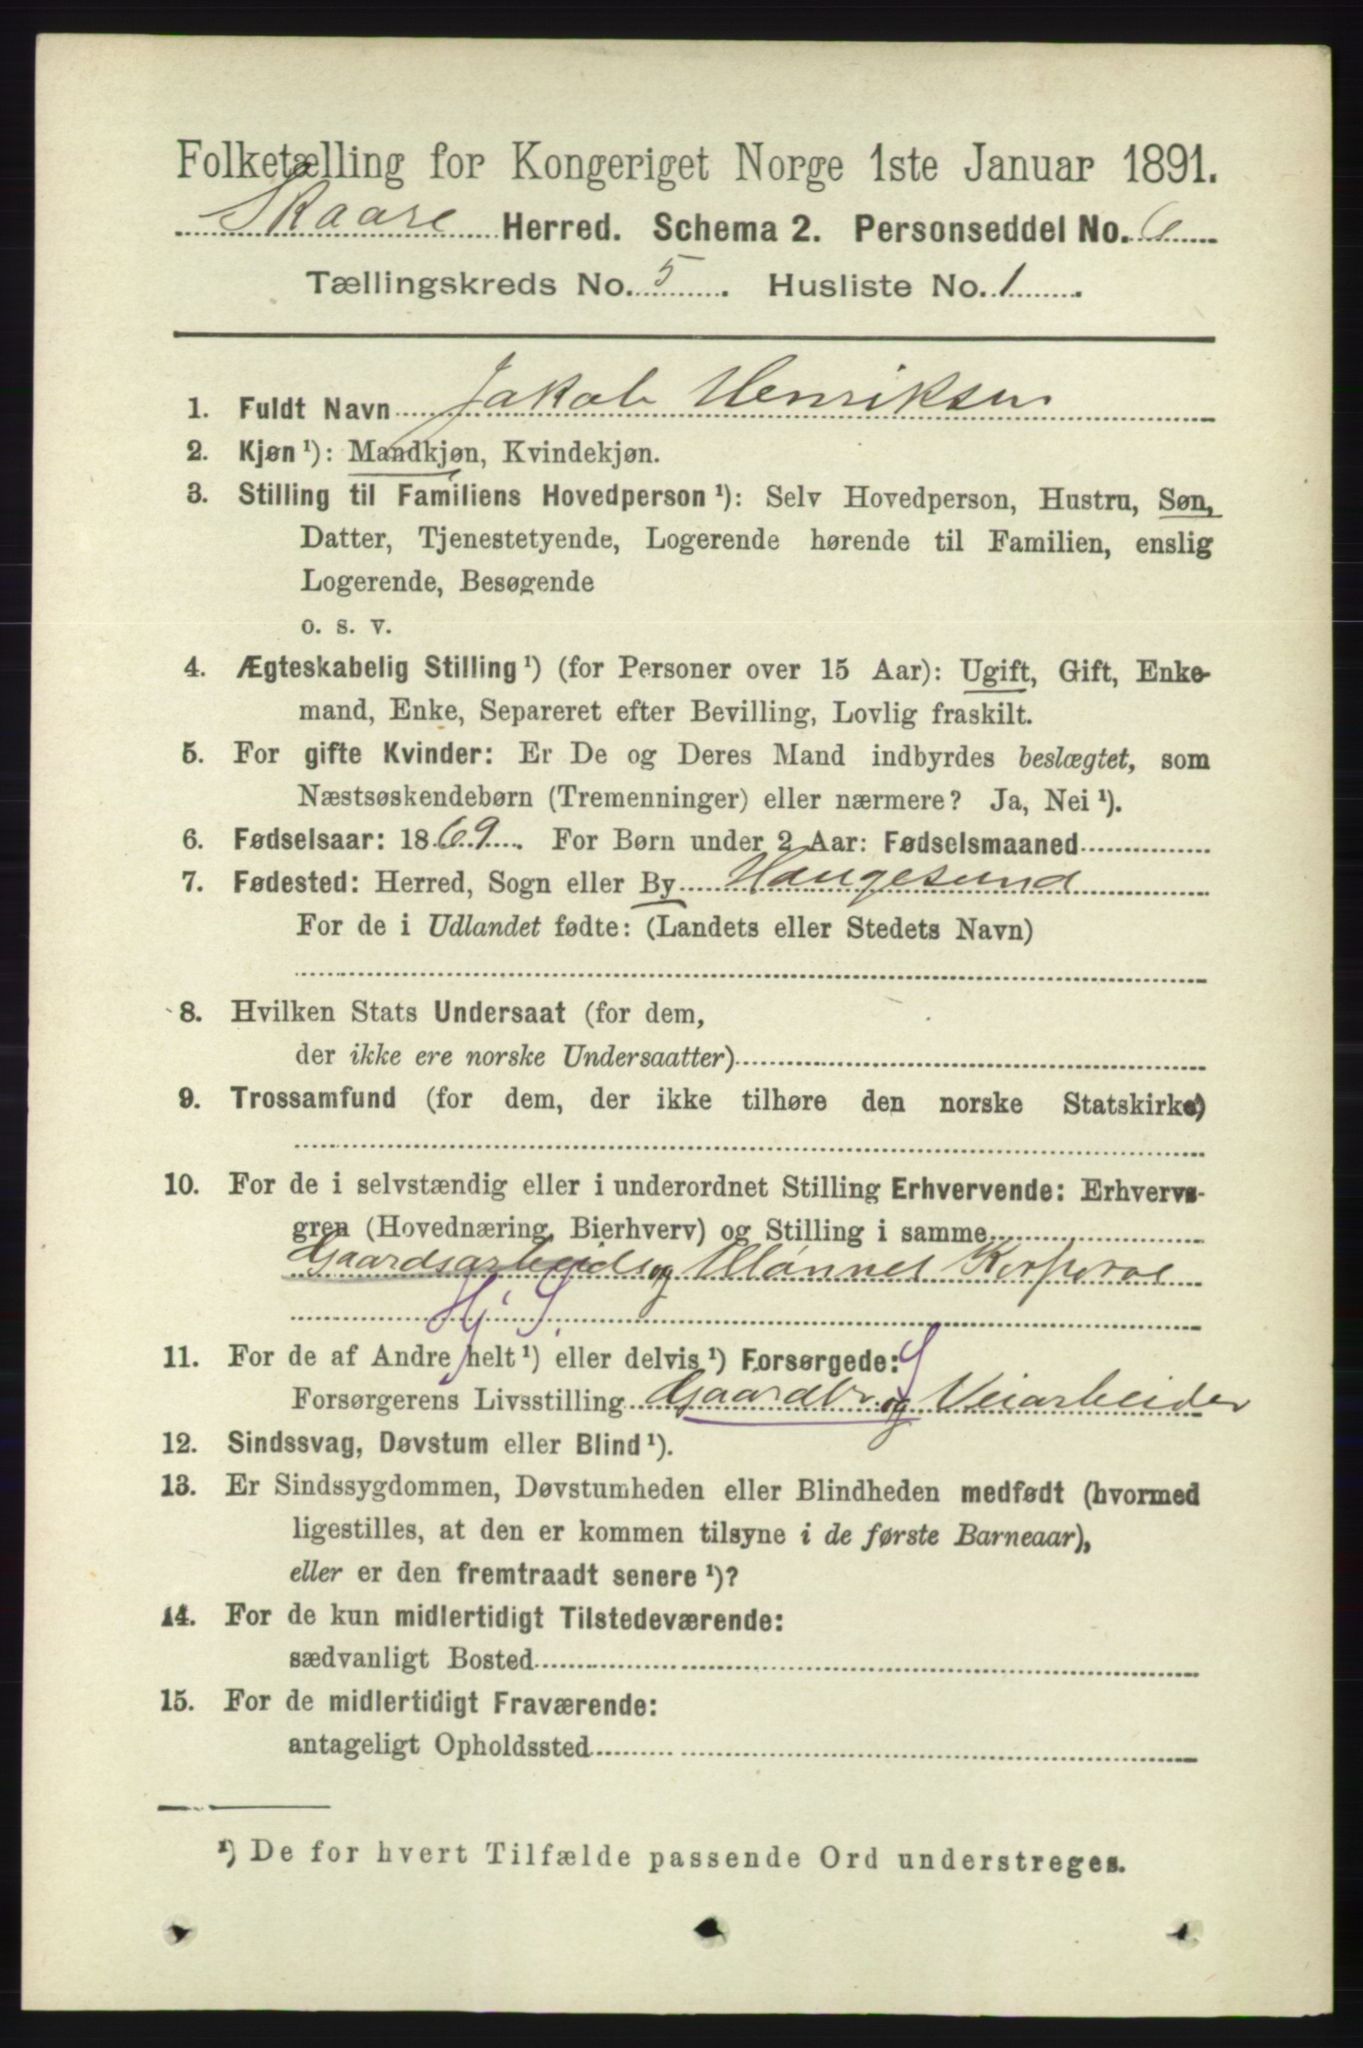 Folketælling for Kongeriget Norge 1ste Januar 1891.
Skaare Herred. Schema 2. Personseddel No. 6
Tællingskreds No. 5. Husliste No. 1.
1. Fuldt Navn Jakob Henriksen
2. Kjøn ¹): Mandkjøn, Kvindekjøn.
3. Stilling til Familiens Hovedperson ¹): Selv Hovedperson, Hustru, Søn,
Datter, Tjenestetyende, Logerende hørende til Familien, enslig
Logerende, Besøgende
o. s. v.
4. Ægteskabelig Stilling ¹) (for Personer over 15 Aar): Ugift, Gift, Enke-
mand, Enke, Separeret efter Bevilling, Lovlig fraskilt.
5. For gifte Kvinder: Er De og Deres Mand indbyrdes beslægtet, som
Næstsøskendebørn (Tremenninger) eller nærmere? Ja, Nei ¹).
6. Fødselsaar: 1869. For Børn under 2 Aar: Fødselsmaaned
7. Fødested: Herred, Sogn eller By Haugesund
For de i Udlandet fødte: (Landets eller Stedets Navn)
8. Hvilken Stats Undersaat (for dem,
der ikke ere norske Undersaatter)
9. Trossamfund (for dem, der ikke tilhøre den norske Statskirke)
10. For de i selvstændig eller i underordnet Stilling Erhvervende: Erhvervs-
gren (Hovednæring, Bierhverv) og Stilling i samme
Gaardsarbeid og Korporal
Hj S.
11. For de af Andre helt ¹) eller delvis ¹) Forsørgede: S
Forsørgerens Livsstilling Gaardbr og Veiarbeider
12. Sindssvag, Døvstum eller Blind ¹).
13. Er Sindssygdommen, Døvstumheden eller Blindheden medfødt (hvormed
ligestilles, at den er kommen tilsyne i de første Barneaar),
eller er den fremtraadt senere ¹)?
14. For de kun midlertidigt Tilstedeværende:
sædvanligt Bosted
15. For de midlertidigt Fraværende:
antageligt Opholdssted
¹) De for hvert Tilfælde passende Ord understreges.